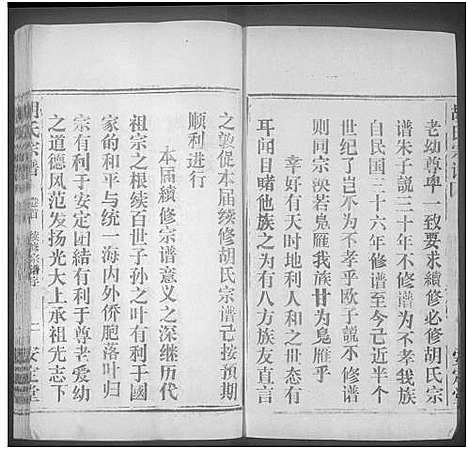 老幼尊卑一致要求續修必修胡氏宗
谱朱子説三十年不修谱不孝我族
自民国三十六年修谱至今已近半个
世纪了岂不为不孝乎欧子説不修谱
则同宗泱若凫雁我族甘为凫雁乎
幸好有天时地利人和之世态有
耳闻目睹他族之为有八方族友直言
之敦促本届续修胡氏宗谱己按预期
顺利进行
本届續修宗谱意义之深继历代
祖宗之根续百世子孙之叶有利于國
家的和平与统一海内外侨胞落叶归
宗有利于安定团结有利于尊老爱幼
之道德风范发扬光大上承祖先志下
胡氏宗譜
卷首
一
安定堂